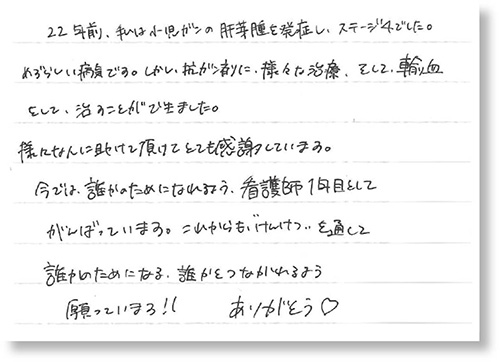 22年前、私は小児ガンの肝芽腫を発症し、ステージ4でした。
めずらしい病気です。しかし、抗がん剤に、様々な治療、そして、輸血
をして、治すことができました。
様々な人に助けて頂けてとても感謝しています。
今では、誰かのためになれるよう、看護師1年目として
がんばっています。これからも"けんけつ"を通して
誰かのためになる、誰かとつながれるよう
願っています!! ありがとう♡